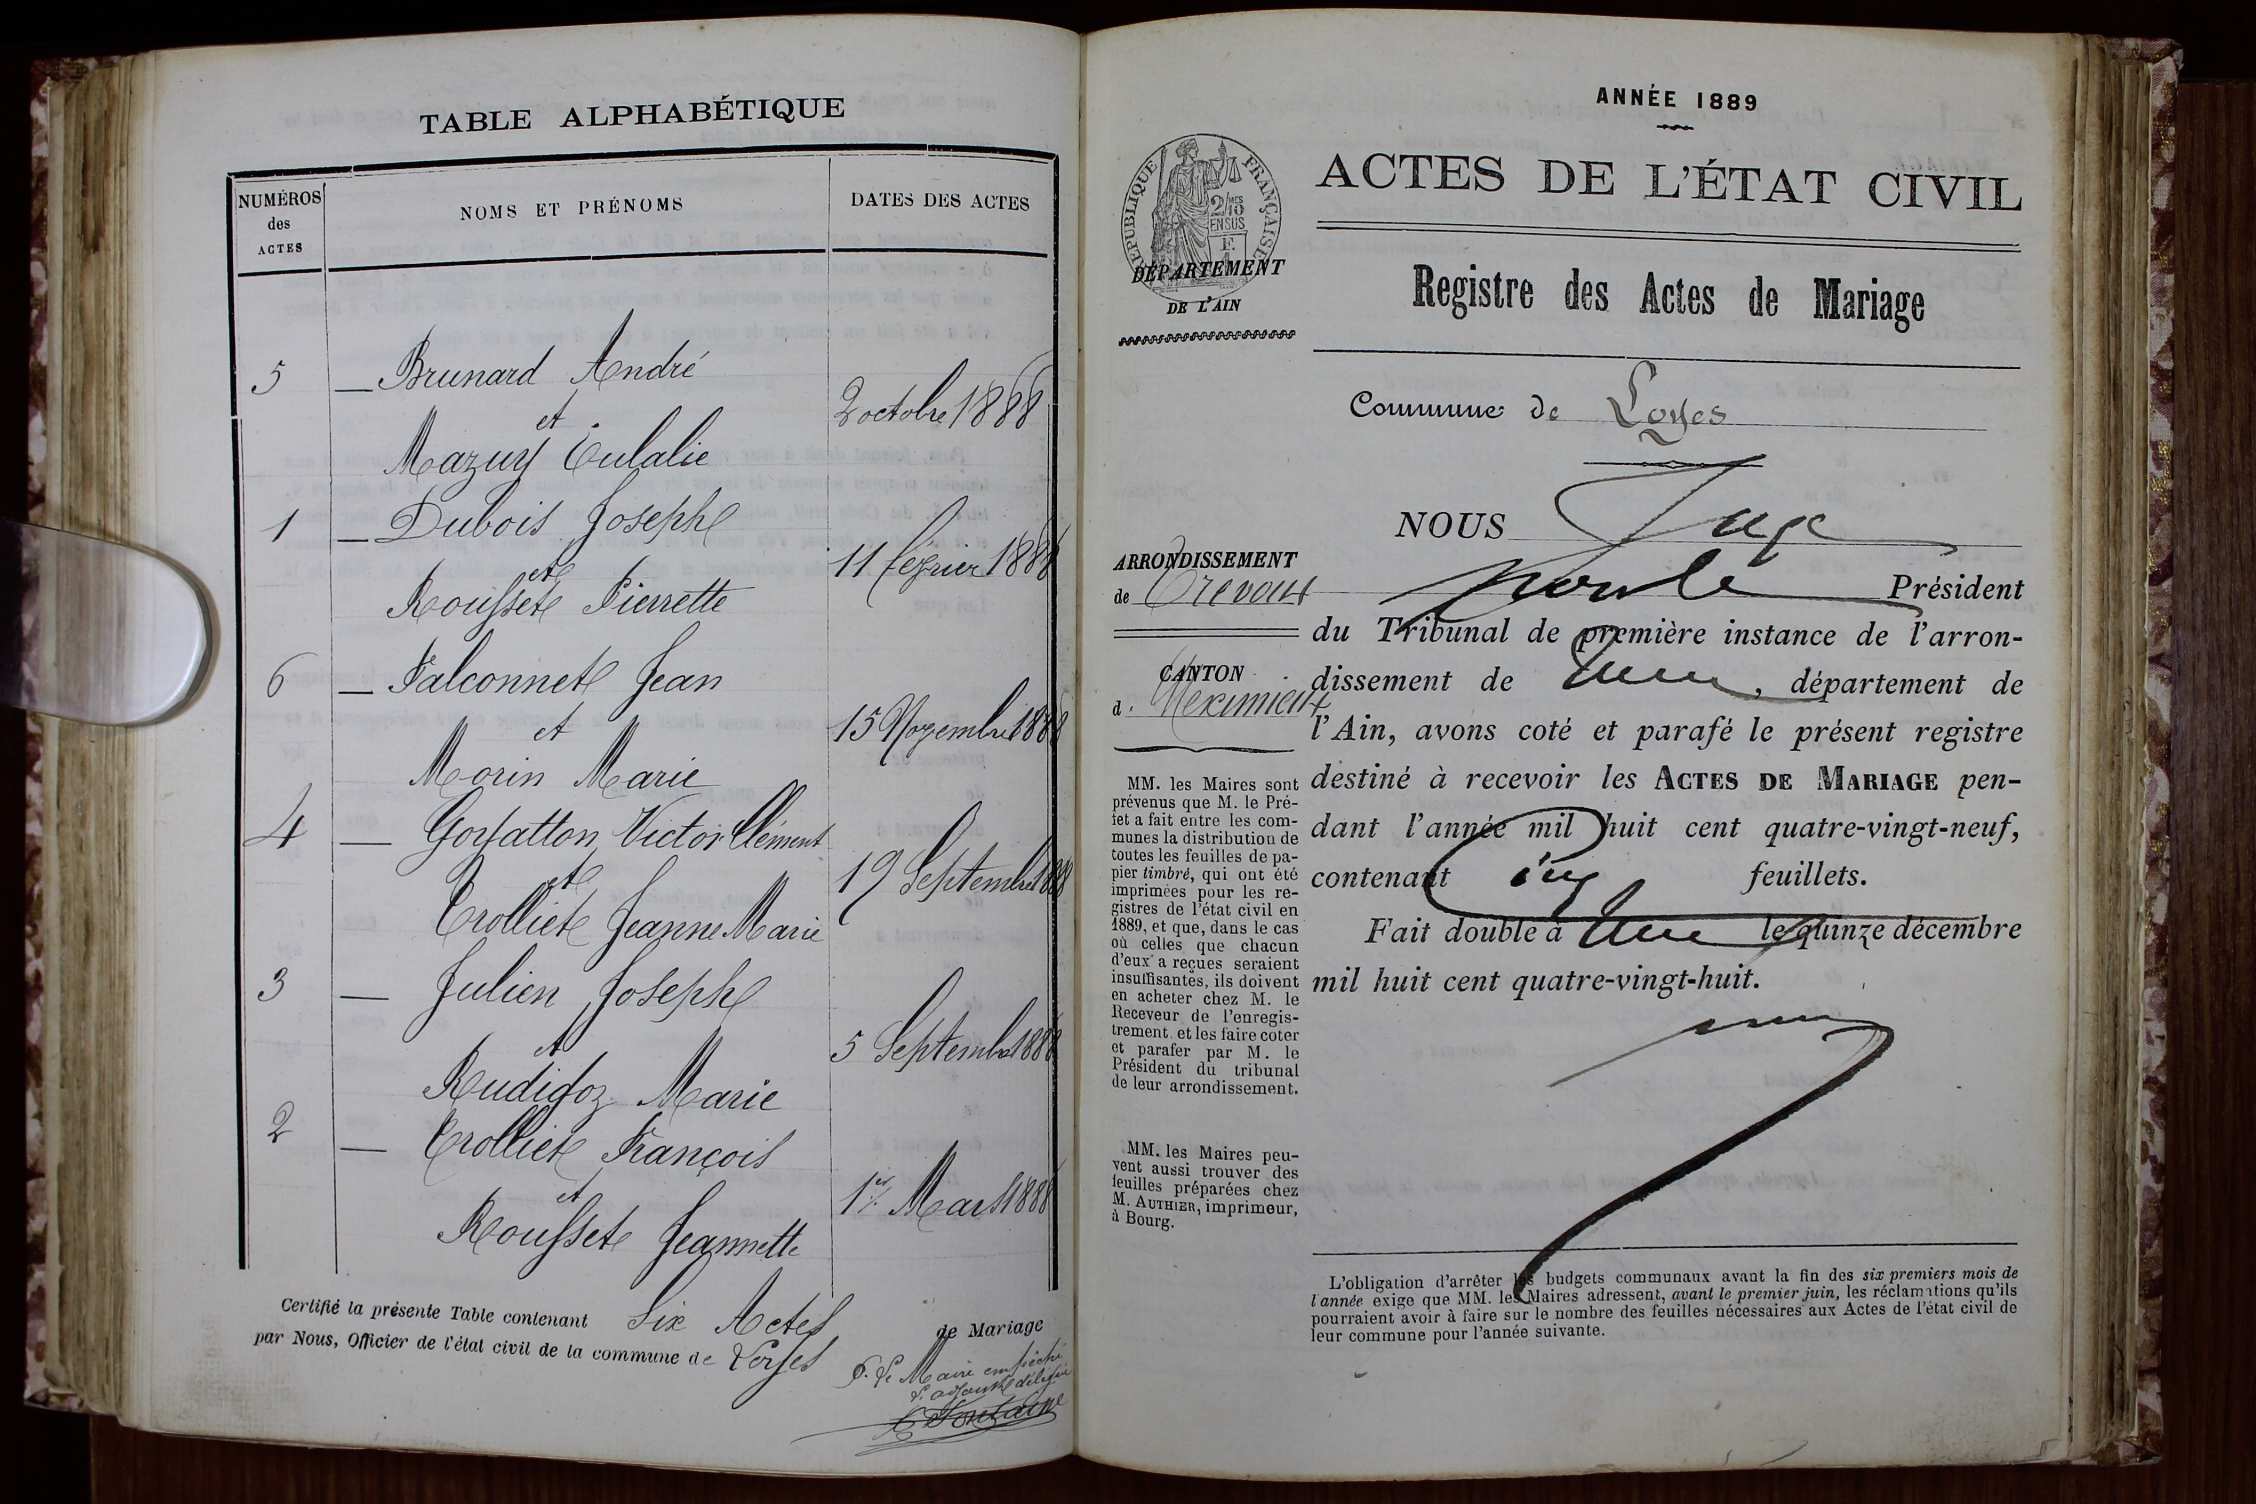 TABLE ALPHABÉTIQUE
NUMÉROS
des
ACTES
NOMS ET PRÉNOMS
DATES DES ACTES
5 — Brunard André
et
2 octobre 1888
Mazuy Eulalie
1 — Dubois Joseph
et
11 février 1888
Rousset Pierrette
6 — Falconnet Jean
et
15 Novembre 1888
Morin Marie
4 — Goyatton Victor Clément
et
19 Septembre 1888
Trolliet Jeanne Marie
3 — Julien Joseph
et
5 Septembre 1888
Rudigoz Marie
2 — Trolliet François
et
1er Mars 1888
Rousset Jeannette
Certifié la présente Table contenant Six Actes de Mariage
par Nous, Officier de l'état civil de la commune de Loyes
P. Le Maire empêché
L'adjoint délégué
Fontaine
ANNÉE 1889
RÉPUBLIQUE FRANÇAISE
2/10MES
EN SUS
DÉPARTEMENT
DE L'AIN
ACTES DE L'ÉTAT CIVIL
Registre des Actes de Mariage
Commune de Loyes
ARRONDISSEMENT
de Trévoux
CANTON
d. Meximieux
MM. les Maires sont
prévenus que M. le Pré-
fet a fait entre les com-
munes la distribution de
toutes les feuilles de pa-
pier timbré, qui ont été
imprimées pour les re-
gistres de l'état civil en
1889, et que, dans le cas
où celles que chacun
d'eux a reçues seraient
insuffisantes, ils doivent
en acheter chez M. le
Receveur de l'enregis-
trement et les faire coter
et parafer par M. le
Président du tribunal
de leur arrondissement.
MM. les Maires peu-
vent aussi trouver des
feuilles préparées chez
M. AUTHIER, imprimeur,
à Bourg.
NOUS Juge
Président
du Tribunal de première instance de l'arron-
dissement de , département de
l'Ain, avons coté et parafé le présent registre
destiné à recevoir les ACTES DE MARIAGE pen-
dant l'année mil huit cent quatre-vingt-neuf,
contenant feuillets.
Fait double à le quinze décembre
mil huit cent quatre-vingt-huit.
L'obligation d'arrêter les budgets communaux avant la fin des six premiers mois de
l'année exige que MM. les Maires adressent, avant le premier juin, les réclamations qu'ils
pourraient avoir à faire sur le nombre des feuilles nécessaires aux Actes de l'état civil de
leur commune pour l'année suivante.